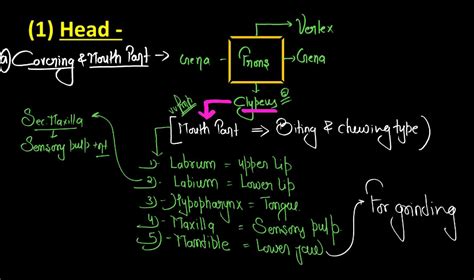 (1) Head -
a) Covering & Mouth Part → Gena - Frons → Gena
→ Vertex
Clypeus
Imp
[Mouth Part ⇒ Biting & chewing type)
Sec Maxilla
Sensory pulp +nt
1) Labrum = upper Lip
2) Labium = Lower Lip
3) Hypopharynx = Tongue
4) Maxilla = Sensory pulp
5) Mandible = Lower jaw
For grinding